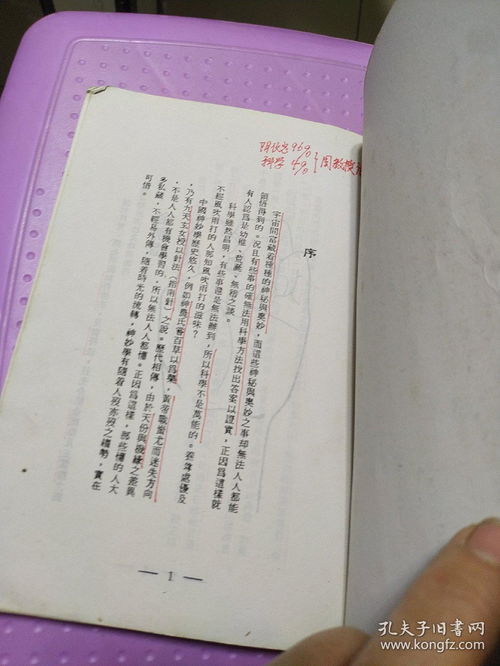 96%
科学 4%
周教授
序
宇宙間富藏着種種的神秘與奧妙，而這些神秘與奧妙之事却無法人人都能
領悟得到的。況且有些事的確無法用科學方法找出答案以證實，正因為這樣就
有人認爲是幼稚、荒謬、無稽之談。
科學雖然昌明，有些事還是無法辦到，所以科學不是萬能的。
不經風吹雨打的人那知風吹雨打的滋味？
中國神妙學歷史悠久，例如神農氏嘗百草以爲藥，黃帝戰蚩尤而迷失方向
乃有九天玄女授以針法（指南針）之說。歷代相傳，由於天份與機緣之差異
，不是人人都有機會學習的，所以無法人人都懂。正因爲這樣，那些懂的人大
多私藏，不輕易外傳，隨着時光的流轉，神妙學有隨着人歿亦歿之趨勢，實在
可惜。
— 1 —
孔夫子旧书网
www.kongfz.com